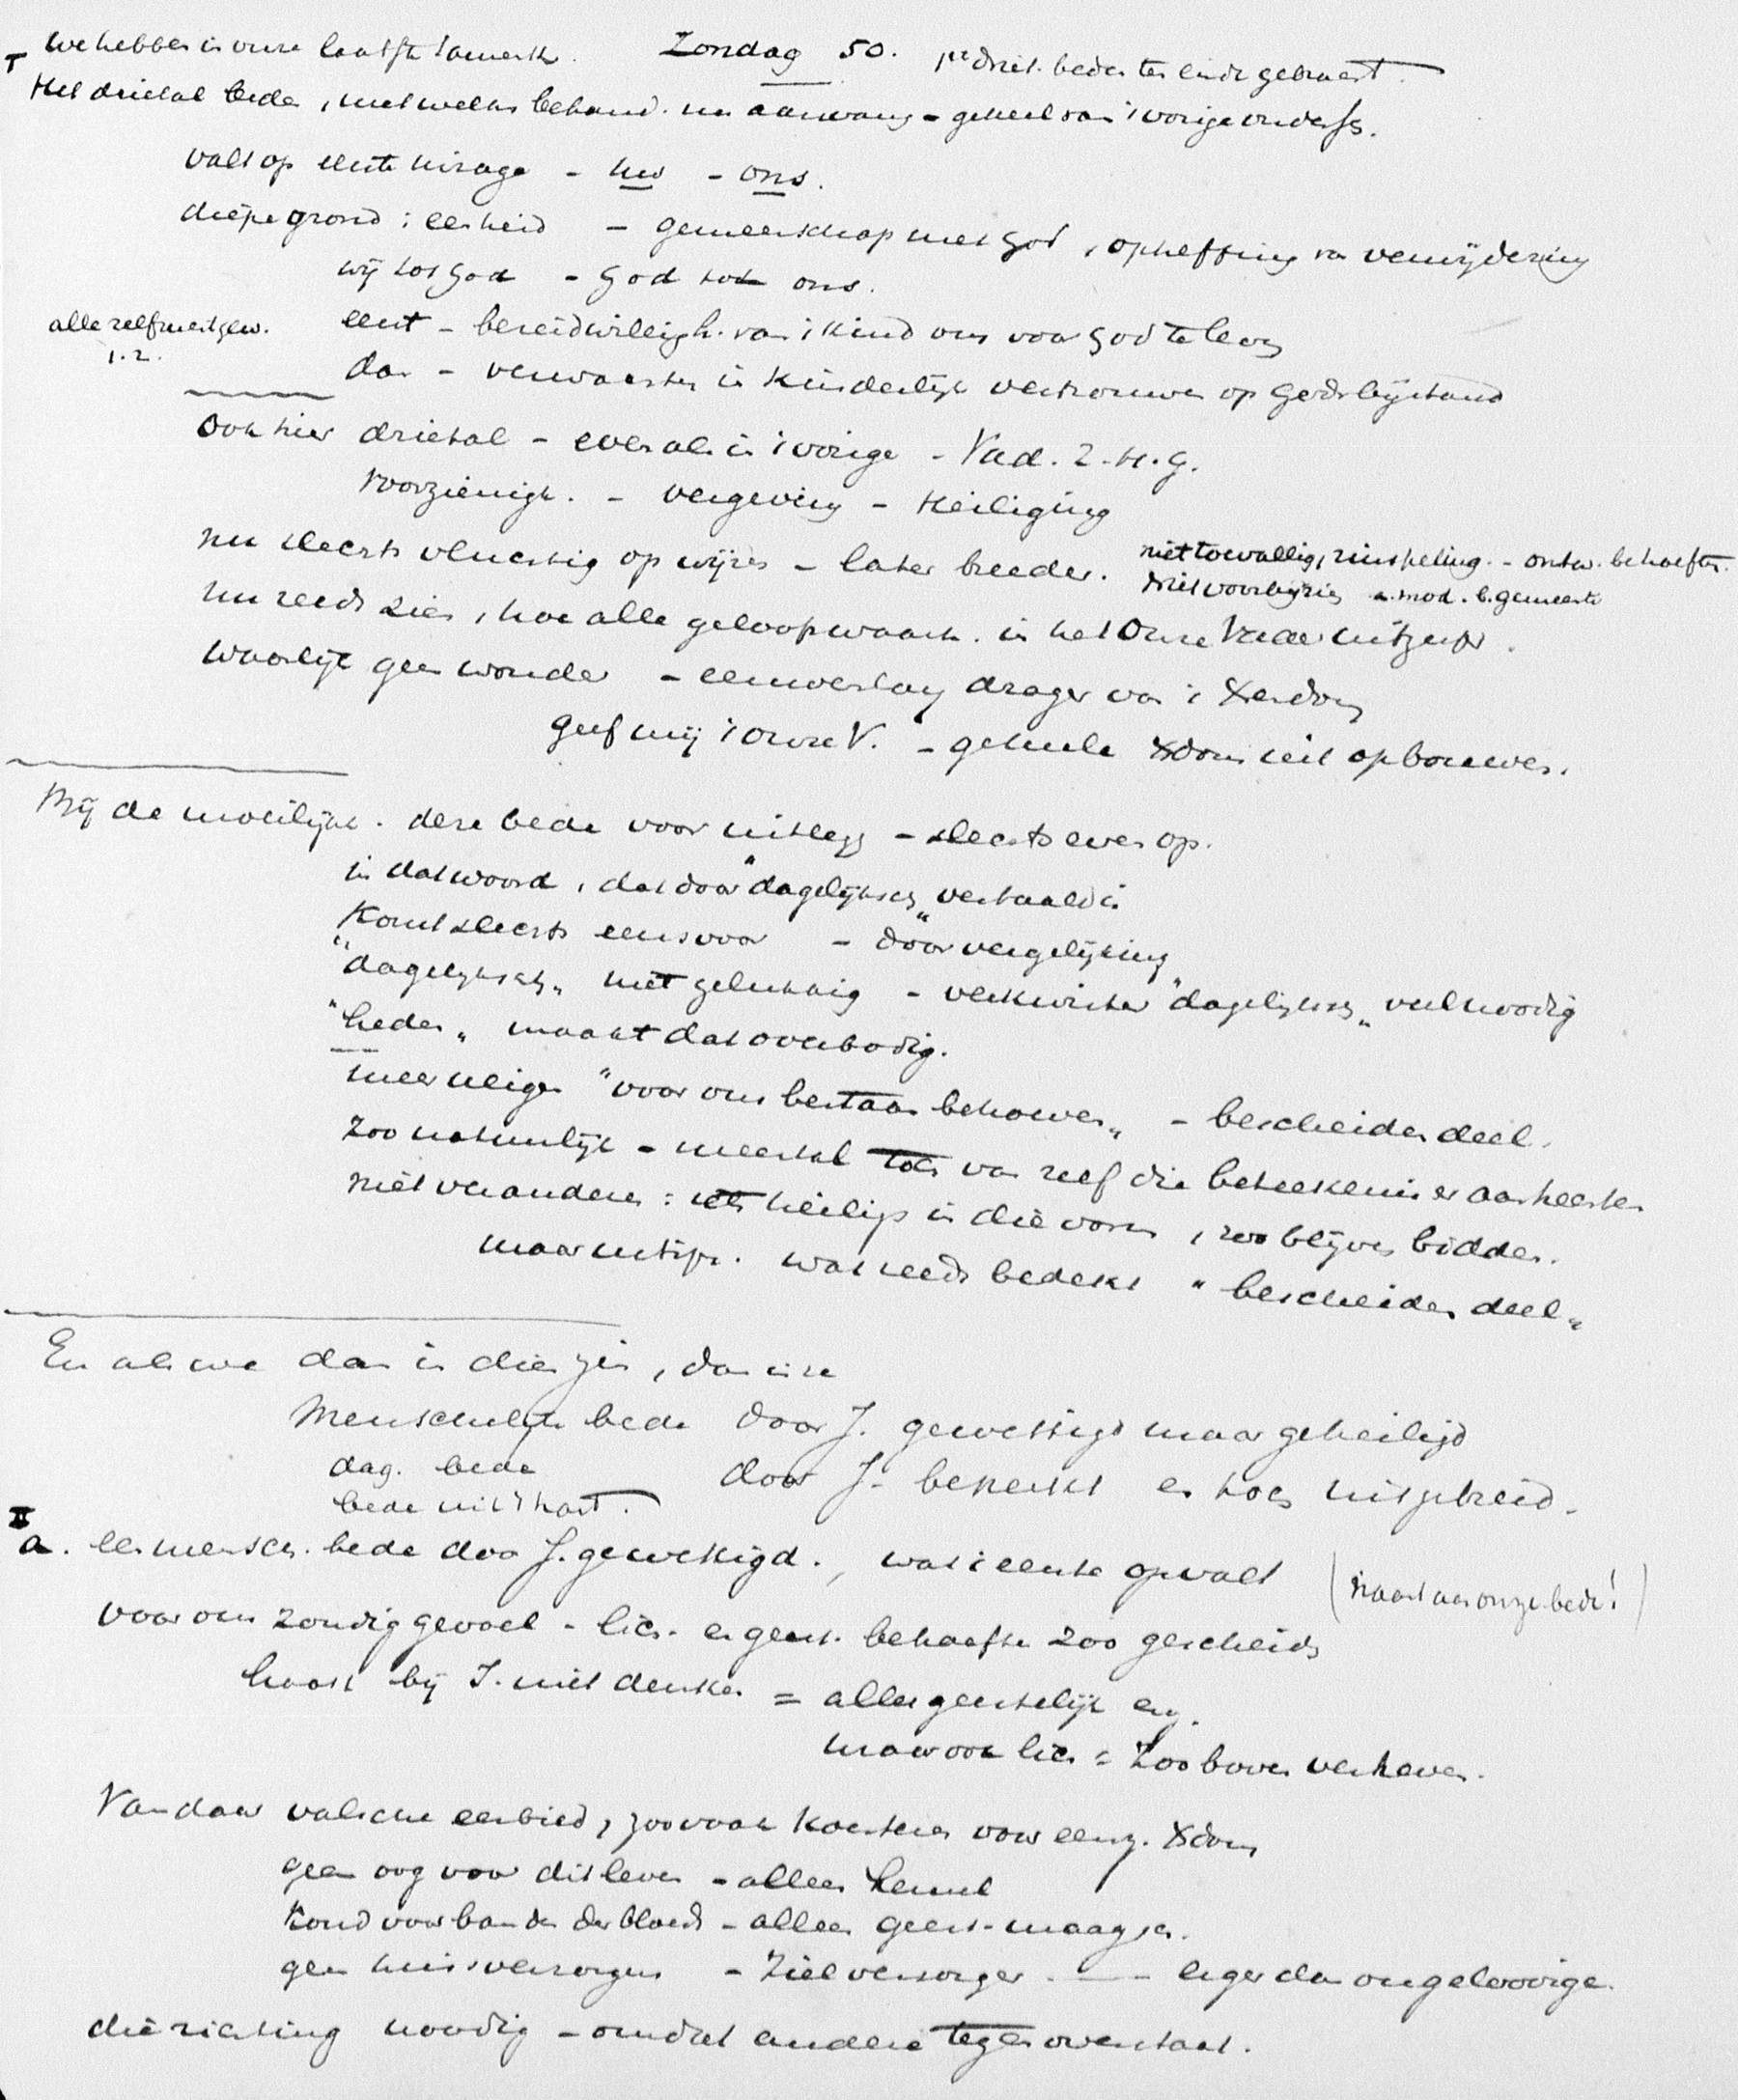 I we hebben in onze laatste samenk. Zondag 50. 1e driet. beden ten einde gebracht.
Het drietal beden, met welks behand. nu aanvang - geheel van 't vorige onderss.
valt op eerste vrage - uw - ons.
diepe grond: eenheid - gemeenschap met God, opheffing van verwijdering
wij tot God - God tot ons.
alle zelfzucht gew.
1.2.
eerst - bereidwilligh. van 't kind om voor God te leven
dan - verwachten in kinderlijk vertrouwen op Gods bijstand
Ook hier drietal - even als in 't vorige - Vad. Z. H. G.
Voorzienigh. - vergeving - Heiliging
nu slechts vluchtig op wijzen - later breeder. niet toevallig, zinspeling - ontw. behoeften.
niet voorbijzien gemeente
nu reeds zien, hoe alle geloofswaarh. in het Onze Vader
waarlijk geen wonder - drager van 't Xendom
geef mij 't Onze V. - geheele Xdom uit opbouwen.
Bij de moeilijkh. deze bede voor uitlegg - slechts even op.
in dat woord, dat door "dagelijksch" vertaald is
Komt slechts eens voor - door vergelijking
"dagelijksch" niet gelukkig - "dagelijksch" veelvoudig
"heden" maakt dat overbodig.
meer neigen "voor ons bestaan behoeven" - bescheiden deel.
Zoo natuurlijk - meestal toch van zelf die beteekenis er aan hechten
niet veranderen: iets heiligs in die vorm, zoo blijven bidden.
maar uitspr. wat reeds bedekt "bescheiden deel"
En als we dan in dien zin, dan is ze
Menschelijke bede door J. gewettigd maar geheiligd
dag. bede door J. beperkt en toch uitgebreid.
bede uit 't hart.
II
a. een mensch. bede door J. gewettigd., wat 't eerste opvalt (naast aan onze bede!)
voor ons zondig gevoel - lich. en geest. behoefte zoo gescheiden
haast bij J. niet denken = alles geestelijk en.
maar ook lich = Zoo boven verheven.
Vandaar valsche eerbied, zoo vaak koesteren voor eenz. Xdom
geen oog voor dit leven - alleen hemel
Koud voor banden des bloeds - alleen geest-maagsch.
geen huisverzorgers - Zielverzorger - erger dan ongeloovige.
die richting noodig - omdat andere tegenoverstaat.